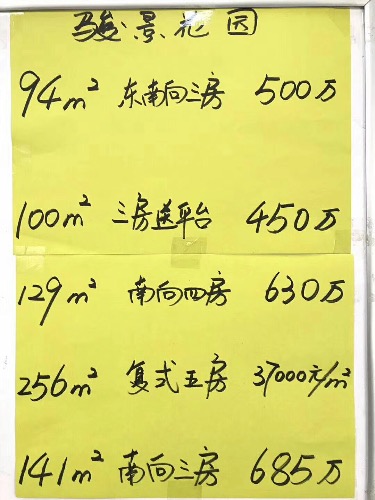 骏景花园
94m² 东南向三房 500万
100m² 三房送平台 450万
129m² 南向四房 630万
256m² 复式五房 37000元/m²
141m² 南向三房 685万